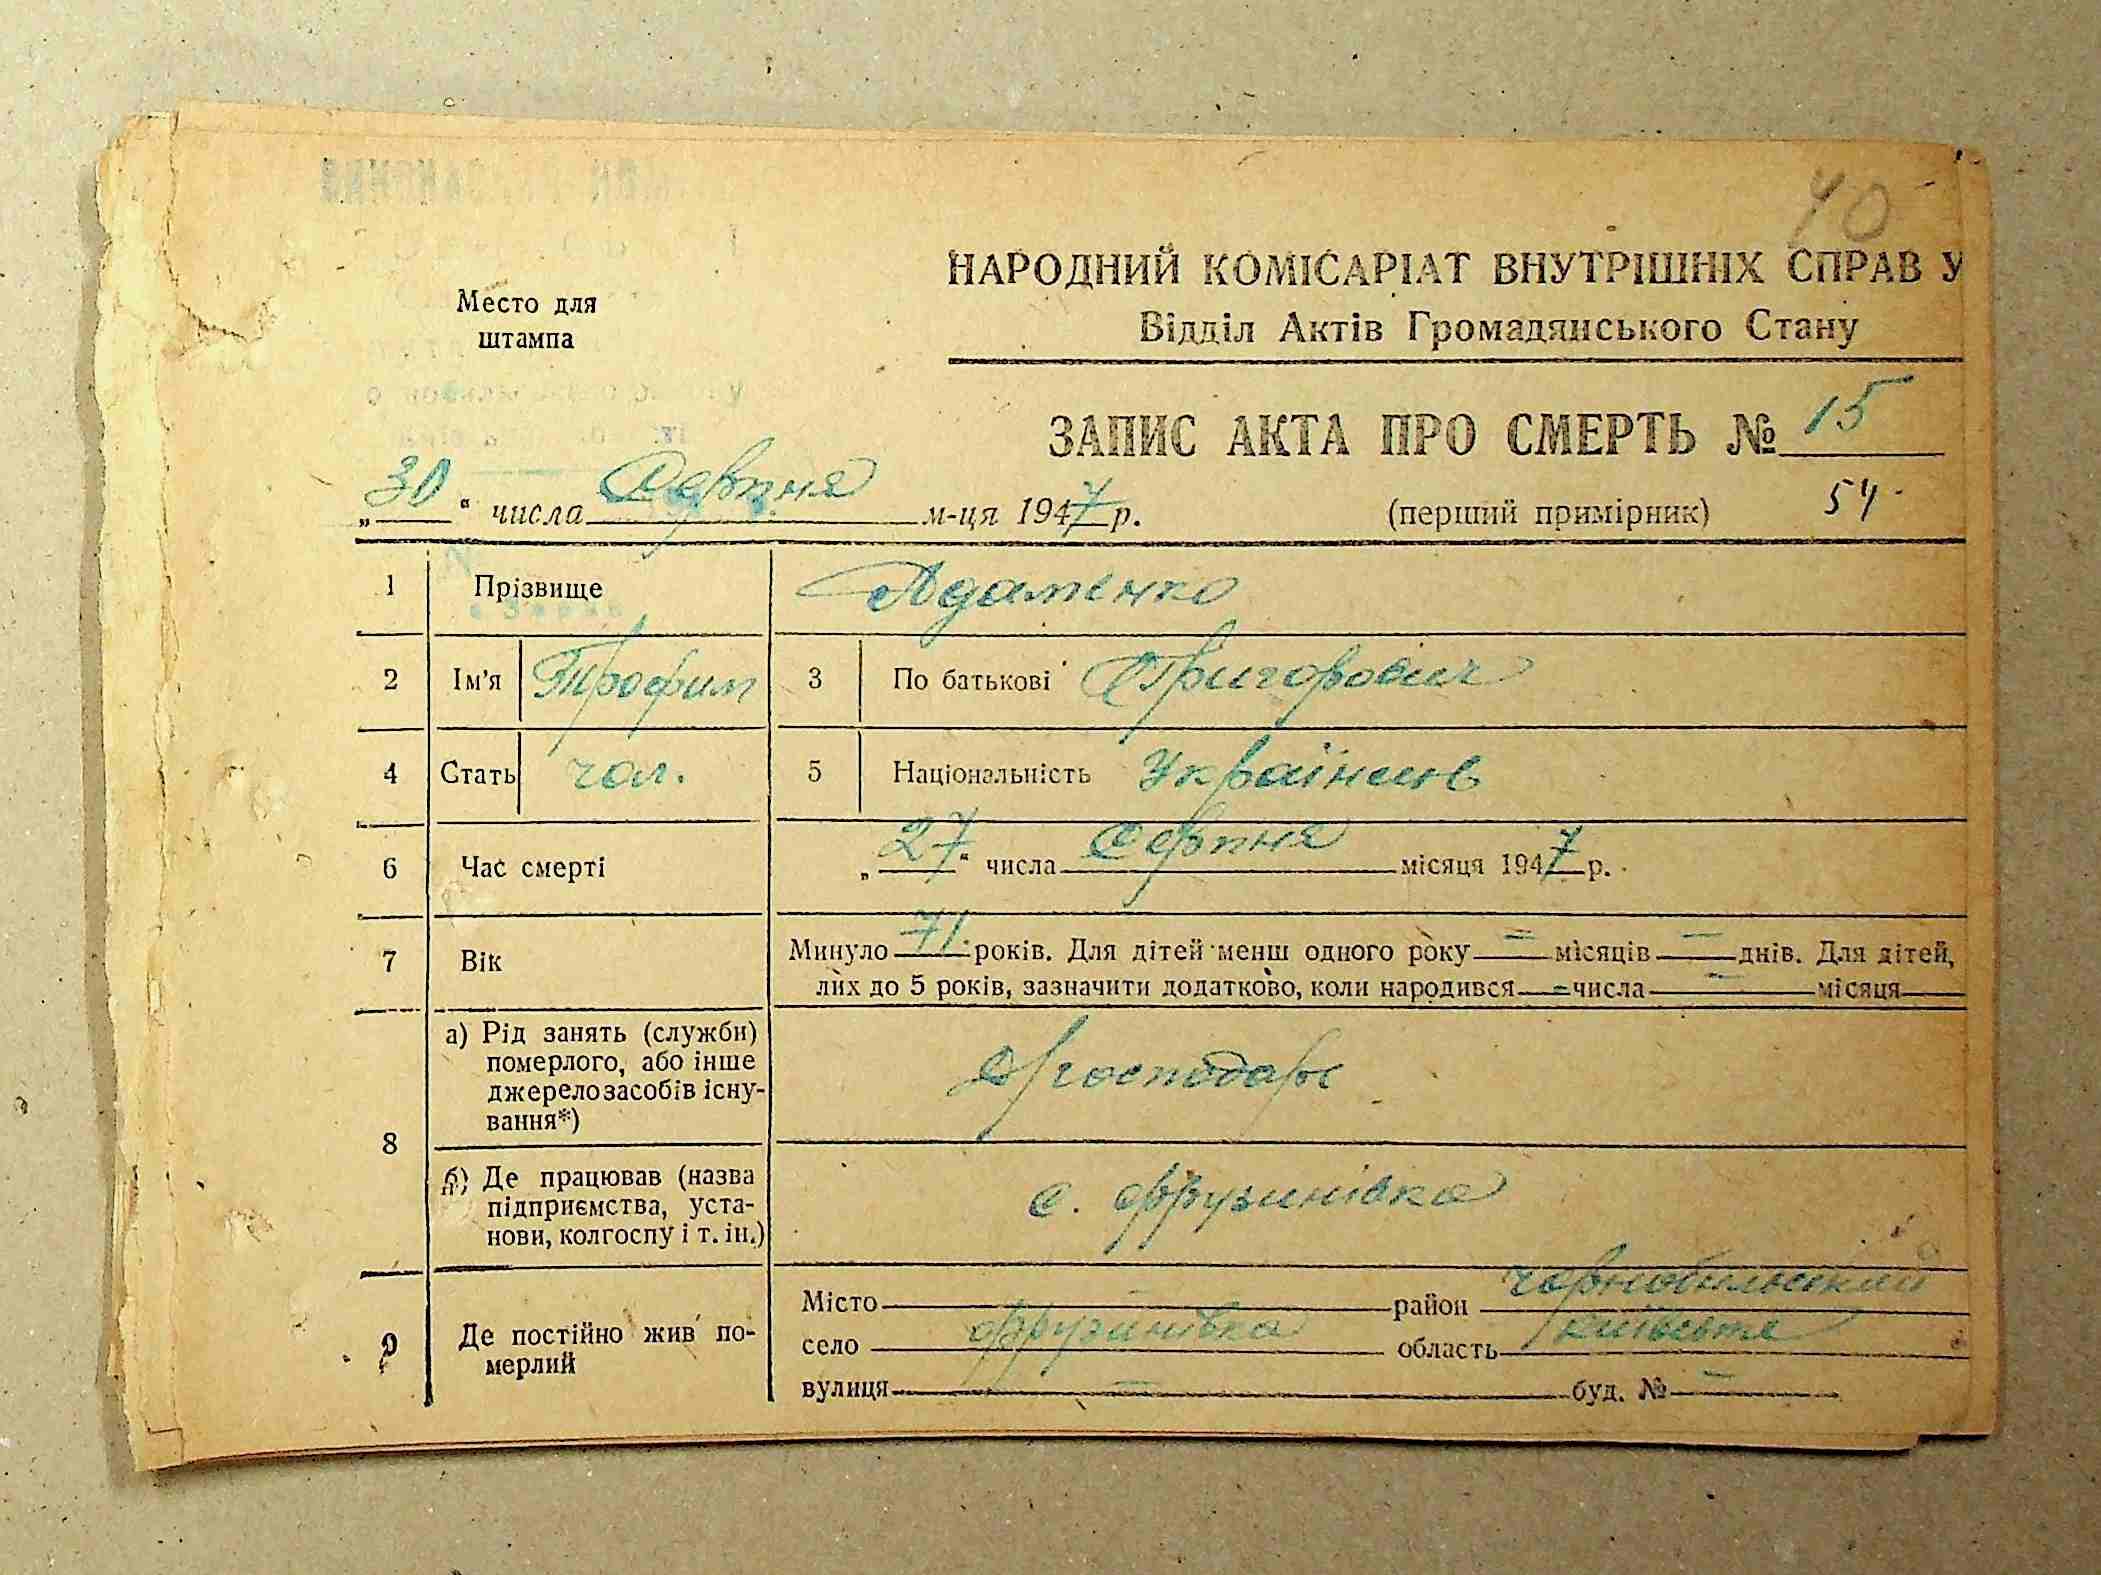 40
НАРОДНИЙ КОМІСАРІАТ ВНУТРІШНІХ СПРАВ У
Відділ Актів Громадянського Стану
Место для
штампа
ЗАПИС АКТА ПРО СМЕРТЬ № 15
„30“ числа Серпня м-ця 1947 р. (перший примірник) 54
1 Прізвище Адаменко
2 Ім’я Трофим 3 По батькові Григорович
4 Стать чол. 5 Національність Українець
6 Час смерті „27“ числа Серпня місяця 1947 р.
7 Вік Минуло 71 років. Для дітей менш одного року — місяців — днів. Для дітей,
лих до 5 років, зазначити додатково, коли народився — числа — місяця
8 а) Рід занять (служби)
померлого, або інше
джерело засобів існу-
вання*)
господарс
б) Де працював (назва
підприємства, уста-
нови, колгоспу і т. ін.)
с. Фрузинівка
9 Де постійно жив по-
мерлий
Місто — район Чорнобильський
село Фрузинівка область Київська
вулиця — буд. № —